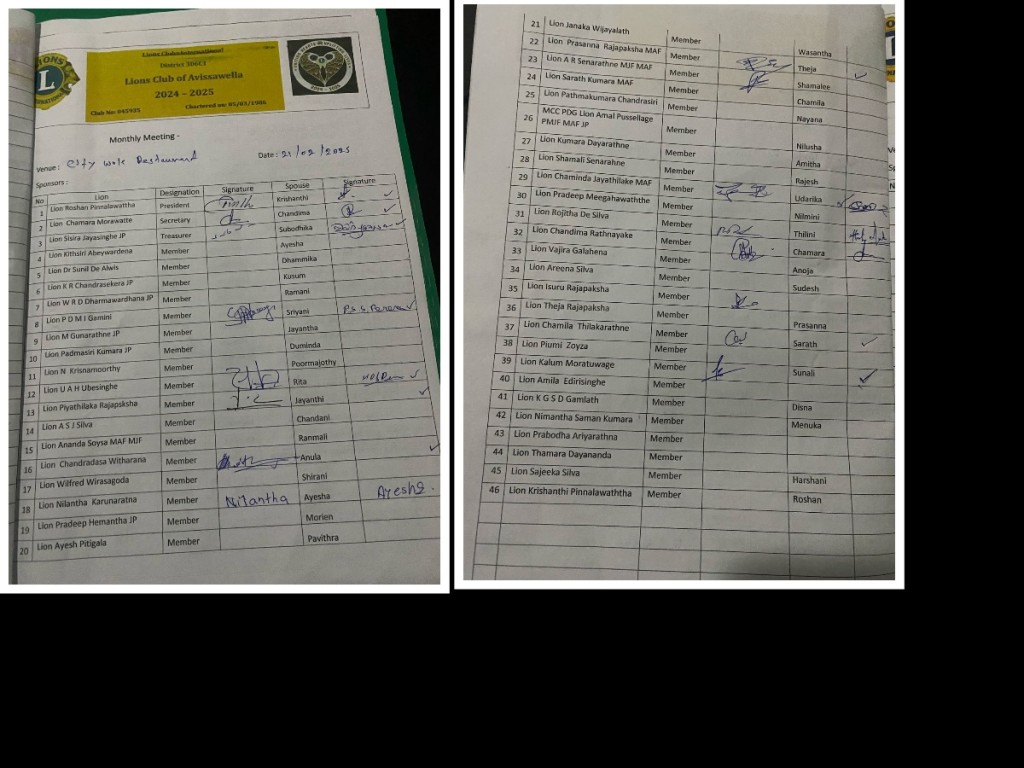 Lions Clubs International
District 306C1
Lions Club of Avissawella
2024 – 2025
Club No-042931 Chartered on: 05/03/1986
LIONS
L
Monthly Meeting -
Venue: City Wok Restaurant Date: 21/02/2025
Sponsors:
No Lion Designation Signature Spouse Signature
1 Lion Roshan Pinnalawattha President Krishanthi
2 Lion Chamara Morawatte Secretary Chandima
3 Lion Sisira Jayasinghe JP Treasurer Subodhika
4 Lion Kithsiri Abeywardena Member Ayesha
5 Lion Dr Sunil De Alwis Member Dhammika
6 Lion K R Chandrasekera JP Member Kusum
7 Lion W R D Dharmawardhana JP Member Ramani
8 Lion P D M I Gamini Member Sriyani
9 Lion M Gunarathne JP Member Jayantha
10 Lion Padmasiri Kumara JP Member Duminda
11 Lion N Krisnamoorthy Member Poormajothy
12 Lion U A H Ubesinghe Member Rita
13 Lion Piyathilaka Rajapsksha Member Jayanthi
14 Lion A S J Silva Member Chandani
15 Lion Ananda Soysa MAF MJF Member Ranmali
16 Lion Chandradasa Witharana Member Anula
17 Lion Wilfred Wirasagoda Member Shirani
18 Lion Nilantha Karunaratna Member Nilantha Ayesha Ayesha.
19 Lion Pradeep Hemantha JP Member Morien
20 Lion Ayesh Pitigala Member Pavithra
21 Lion Janaka Wijayalath Member Wasantha
22 Lion Prasanna Rajapaksha MAF Member Theja
23 Lion A R Senarathne MJF MAF Member Shamalee
24 Lion Sarath Kumara MAF Member Chamila
25 Lion Pathmakumara Chandrasiri Member Nayana
26 MCC PDG Lion Amal Pussellage PMJF MAF JP Member Nilusha
27 Lion Kumara Dayarathne Member Amitha
28 Lion Shamali Senarahne Member Rajesh
29 Lion Chaminda Jayathilake MAF Member Udarika
30 Lion Pradeep Meegahawaththe Member Nilmini
31 Lion Rojitha De Silva Member Thilini
32 Lion Chandima Rathnayake Member Chamara
33 Lion Vajira Galahena Member Anoja
34 Lion Areena Silva Member Sudesh
35 Lion Isuru Rajapaksha Member
36 Lion Theja Rajapaksha Member Prasanna
37 Lion Chamila Thilakarathne Member Sarath
38 Lion Piumi Zoyza Member
39 Lion Kalum Moratuwage Member Sunali
40 Lion Amila Edirisinghe Member
41 Lion K G S D Gamlath Member Disna
42 Lion Nimantha Saman Kumara Member Menuka
43 Lion Prabodha Ariyarathna Member
44 Lion Thamara Dayananda Member
45 Lion Sajeeka Silva Member Harshani
46 Lion Krishanthi Pinnalawaththa Member Roshan